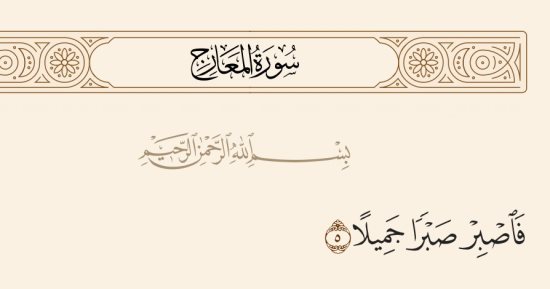 سُورَةُ المَعَارِجِ
بِسْمِ اللَّهِ الرَّحْمَٰنِ الرَّحِيمِ
فَٱصۡبِرۡ صَبۡرٗا جَمِيلًا ٥